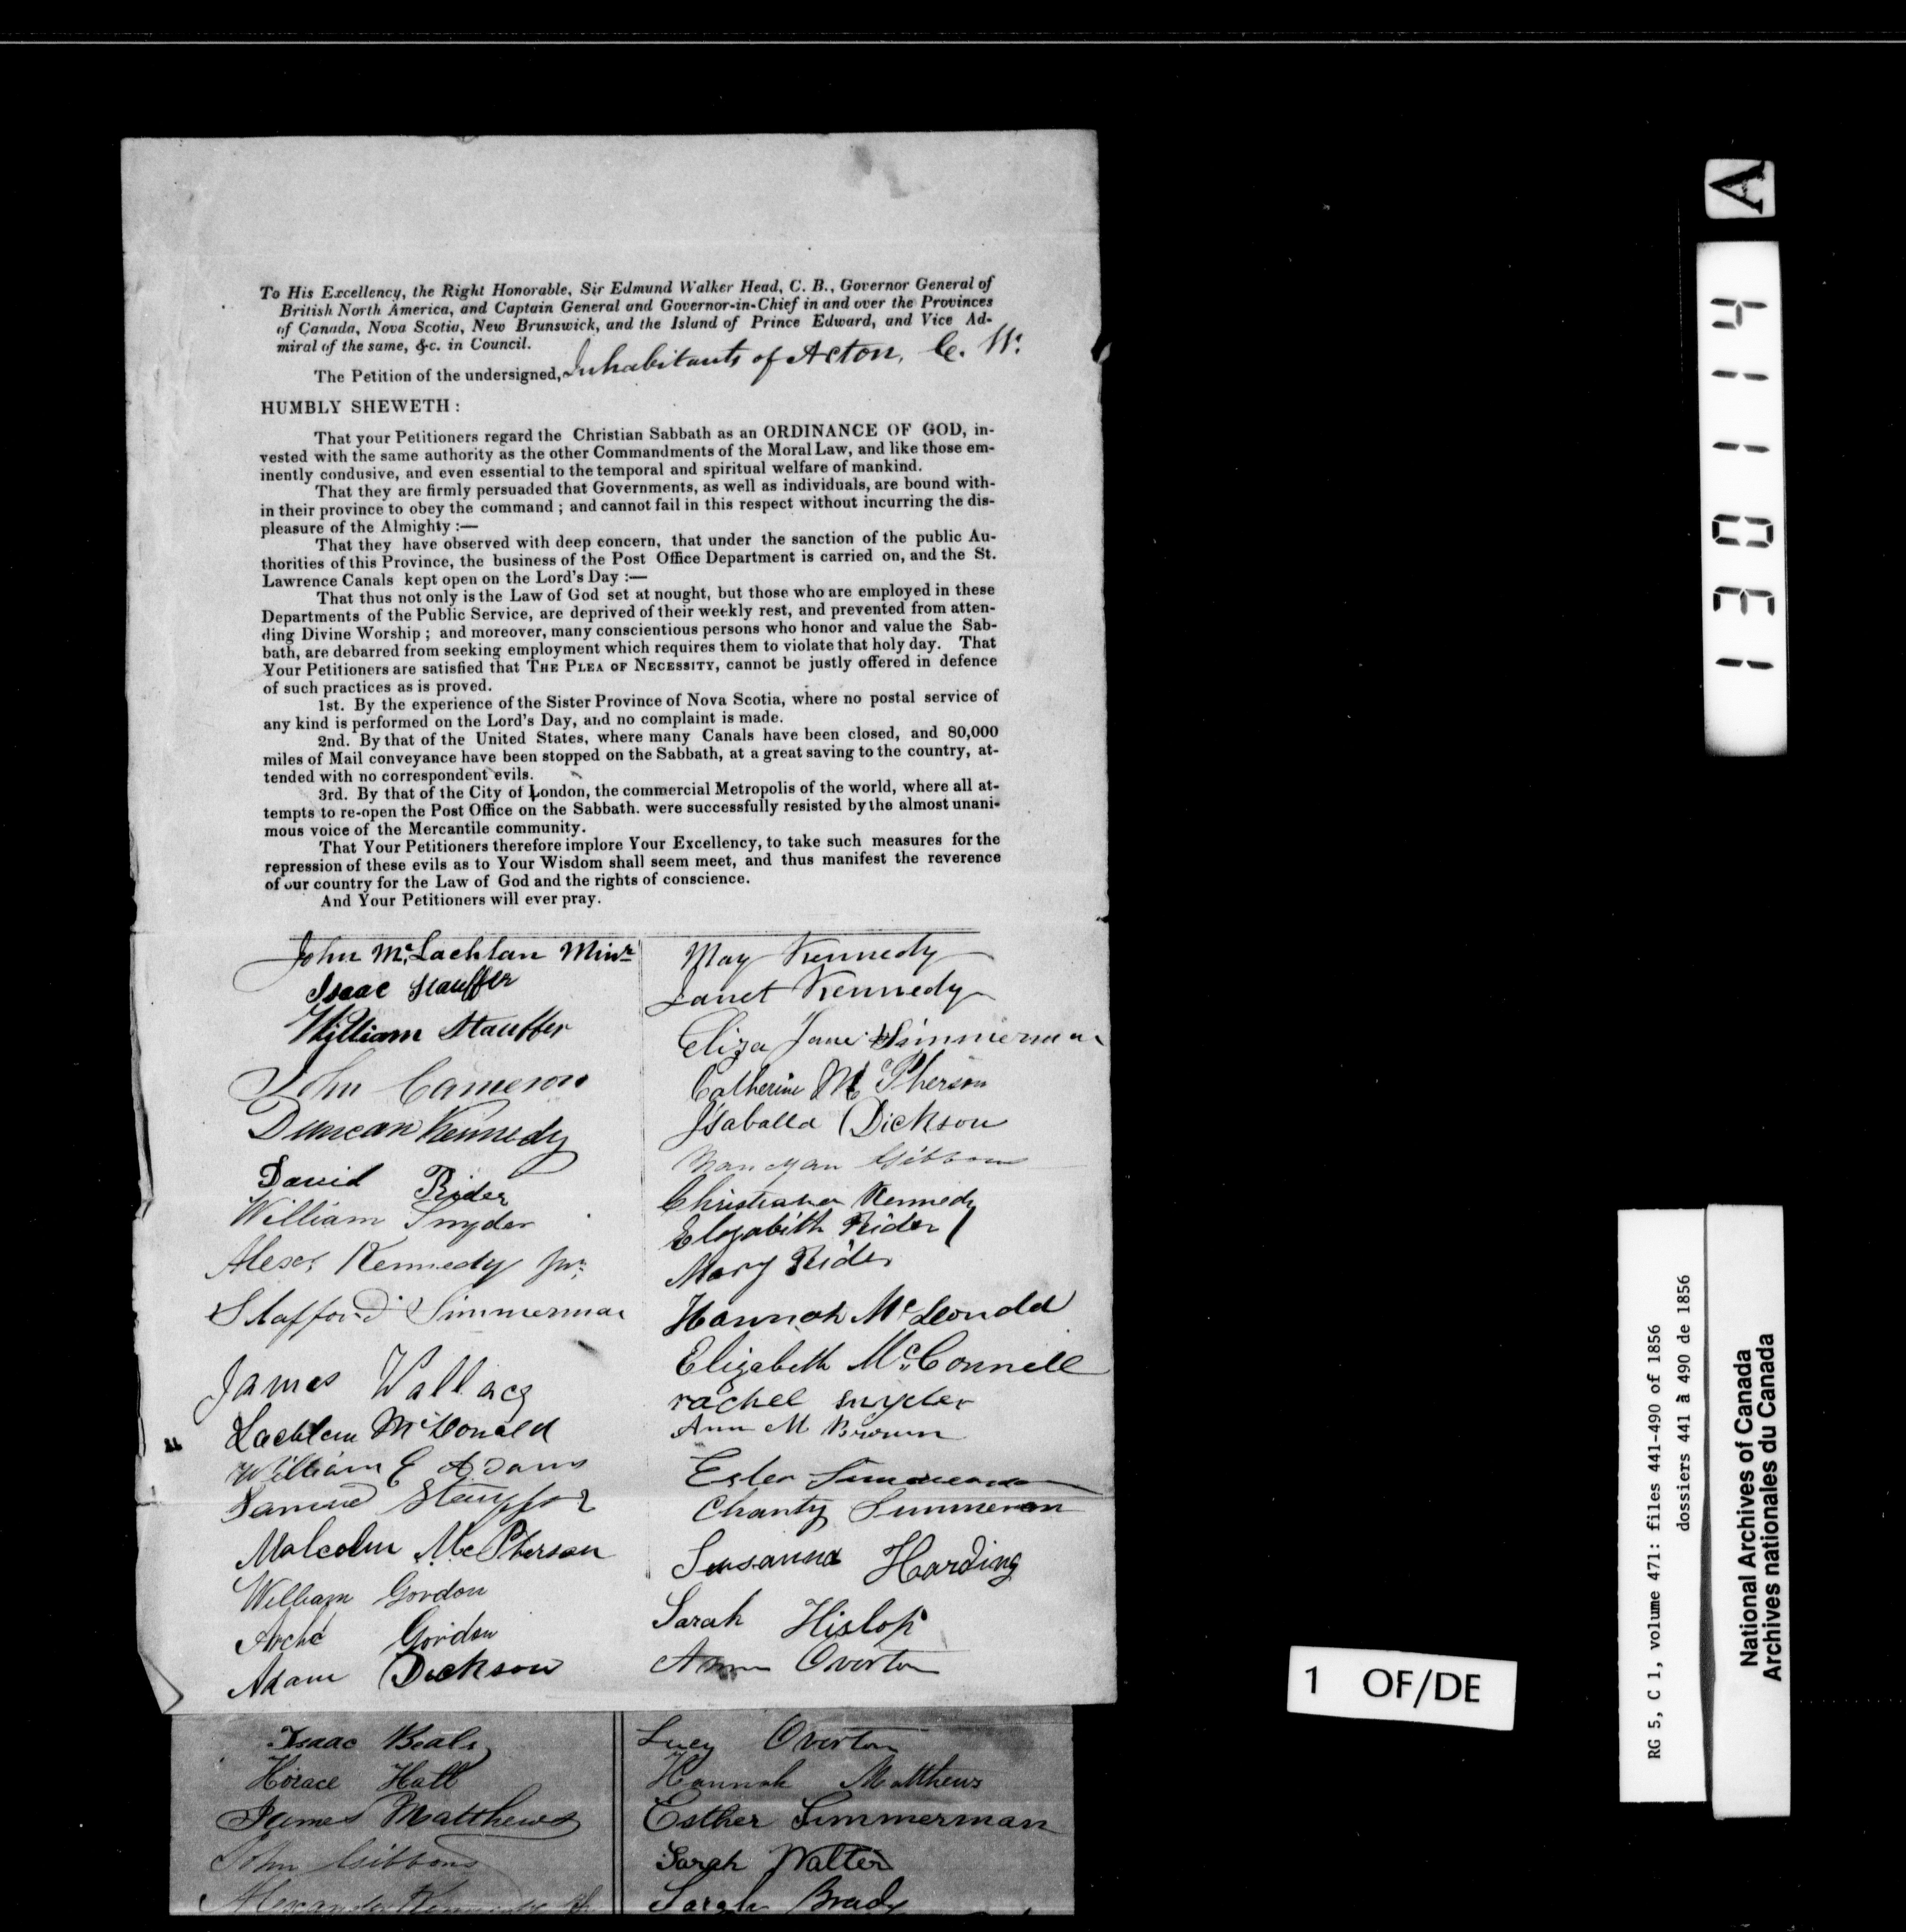 To His Excellency, the Right Honorable, Sir Edmund Walker Head, C. B., Governor General of
British North America, and Captain General and Governor-in-Chief in and over the Provinces
of Canada, Nova Scotia, New Brunswick, and the Island of Prince Edward, and Vice Ad-
miral of the same, &c. in Council.
The Petition of the undersigned, Inhabitants of Acton, C. W.
HUMBLY SHEWETH :
That your Petitioners regard the Christian Sabbath as an ORDINANCE OF GOD, in-
vested with the same authority as the other Commandments of the Moral Law, and like those em-
inently condusive, and even essential to the temporal and spiritual welfare of mankind.
That they are firmly persuaded that Governments, as well as individuals, are bound with-
in their province to obey the command ; and cannot fail in this respect without incurring the dis-
pleasure of the Almighty :—
That they have observed with deep concern, that under the sanction of the public Au-
thorities of this Province, the business of the Post Office Department is carried on, and the St.
Lawrence Canals kept open on the Lord's Day :—
That thus not only is the Law of God set at nought, but those who are employed in these
Departments of the Public Service, are deprived of their weekly rest, and prevented from atten-
ding Divine Worship ; and moreover, many conscientious persons who honor and value the Sab-
bath, are debarred from seeking employment which requires them to violate that holy day. That
Your Petitioners are satisfied that THE PLEA OF NECESSITY, cannot be justly offered in defence
of such practices as is proved.
1st. By the experience of the Sister Province of Nova Scotia, where no postal service of
any kind is performed on the Lord's Day, and no complaint is made.
2nd. By that of the United States, where many Canals have been closed, and 80,000
miles of Mail conveyance have been stopped on the Sabbath, at a great saving to the country, at-
tended with no correspondent evils.
3rd. By that of the City of London, the commercial Metropolis of the world, where all at-
tempts to re-open the Post Office on the Sabbath. were successfully resisted by the almost unani-
mous voice of the Mercantile community.
That Your Petitioners therefore implore Your Excellency, to take such measures for the
repression of these evils as to Your Wisdom shall seem meet, and thus manifest the reverence
of our country for the Law of God and the rights of conscience.
And Your Petitioners will ever pray.
John McLachlan Minr
Isaac Stauffer
William Stauffer
John Cameron
Duncan Kennedy
David Rider
William Snyder
Alexr Kennedy Junr
Stafford Simmerman
James Wallace
Lachlan McDonald
William E Adams
Samuel Stauffer
Malcolm McPherson
William Gordon
Archd Gordon
Adam Dickson
Isaac Beals
Horace Hall
James Matthews
John Gibbons
Alexander Kennedy
May Kennedy
Janet Kennedy
Eliza Jane Simmerman
Catherine McPherson
Isaballa Dickson
Gibbons
Christiana Kennedy
Elizabith Rider
Mary Rider
Hannah McDonald
Elizabeth McConnell
rachel snyder
Ann M Brown
Ester Simmerman
Charity Simmerman
Susanna Harding
Sarah Hislop
Ann Overton
Lucy Overton
Hannah Matthews
Esther Simmerman
Sarah Walter
Sarah Brady
1 OF/DE
RG 5, C 1, volume 471: files 441-490 of 1856
dossiers 441 à 490 de 1856
National Archives of Canada
Archives nationales du Canada
A
H 1 1 0 3 1